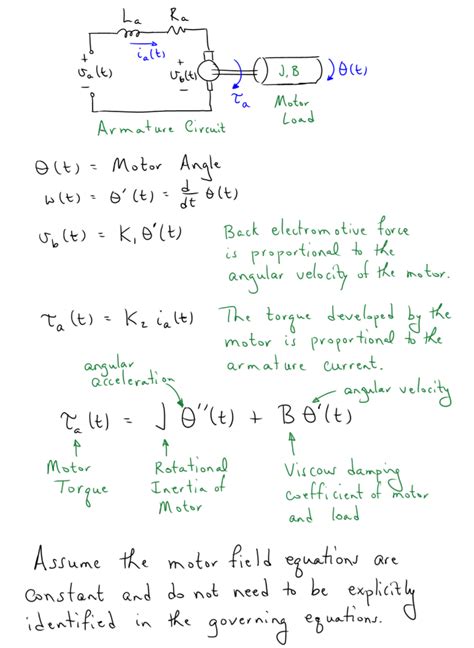 La Ra
ia(t)
+ va(t) −
+ vb(t) −
τa
J, B
θ(t)
Motor
Load
Armature Circuit
θ(t) = Motor Angle
w(t) = θ'(t) = d/dt θ(t)
vb(t) = K₁ θ'(t)
Back electromotive force
is proportional to the
angular velocity of the motor.
τa(t) = K₂ ia(t)
The torque developed by the
motor is proportional to the
armature current.
angular
acceleration
angular velocity
τa(t) = J θ''(t) + B θ'(t)
Motor
Torque
Rotational
Inertia of
Motor
Viscous damping
coefficient of motor
and load
Assume the motor field equations are
constant and do not need to be explicitly
identified in the governing equations.